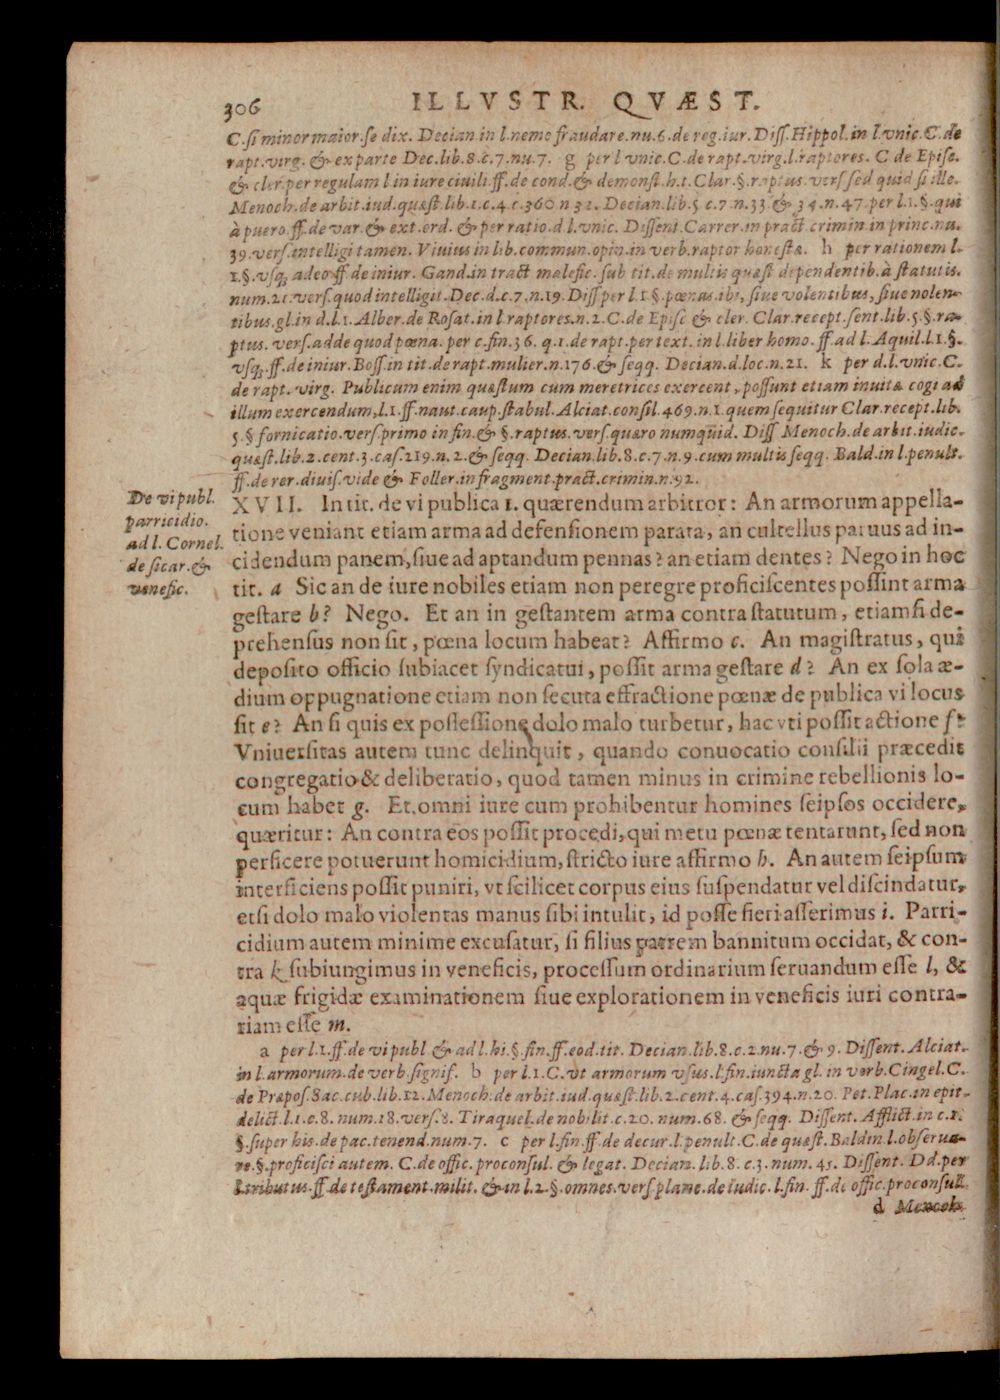 306 ILLVSTR. QVÆST.
C. si minor maior. se dix. Decian in l. nemo fraudare. nu. 6. de reg. iur. Diss. Hippol. in l. vnic. C. de
rapt. virg. & ex parte Dec. lib. 8. c. 7. nu. 7. g per l vnic. C. de rapt. virg. l. raptores. C de Episc.
& cler. per regulam l in iure ciuili. ff. de cond. & demonst. h. t. Clar. §. raptus. vers sed quid si ille.
Menoch. de arbit. iud. quæst. lib. 1. c. 4 c. 360 n 32. Decian. lib. 5 c. 7. n. 33 & 34. n. 47. per l. 1. §. qui
à puero. ff. de var. & ext. ord. & per ratio. d l. vnic. Dissent. Carrer. in pract crimin. in princ. nu.
39. vers. intelligi tamen. Viuius in lib. commun. opin. in verb. raptor honestæ. h per rationem l.
1. §. vsq; adeo ff de iniur. Gand. in tract malefic. sub tit. de multis quæst dependentib. à statutis.
num. 21. vers. quod intelligit. Dec. d. c. 7. n. 19. Diss per l. 1 §. pœnas. ibi, siue volentibus, siue nolen-
tibus. gl. in d. l. 1. Alber. de Rosat. in l raptores. n. 2. C. de Episc & cler. Clar. recept. sent. lib. 5. §. ra-
ptus. vers. adde quod pœna. per c. fin. 36. q. 1. de rapt. per text. in l. liber homo. ff. ad l. Aquil. l. 1 §.
vsq;. ff. de iniur. Boss. in tit. de rapt. mulier. n. 176. & seqq. Decian. d. loc. n. 21. k per d. l. vnic. C.
de rapt. virg. Publicum enim quæstum cum meretrices exercent, possunt etiam inuitæ cogi ad
illum exercendum, l. 1. ff. naut. caup. stabul. Alciat. consil. 469. n. 1. quem sequitur Clar. recept. lib.
5. § fornicatio. vers. primo in fin. & §. raptus. vers. quæro numquid. Diss Menoch. de arbit. iudic.
quæst. lib. 2. cent. 3. cas. 219. n. 2. & seqq. Decian. lib. 8. c. 7. n. 9. cum multis seqq. Bald. in l. penult.
ff. de rer. diuis. vide & Foller. in fragment. pract. crimin. n. 92.
De vi publ.
parricidio.
ad l. Cornel.
de sicar. &
venefic.
XVII. In tit. de vi publica 1. quærendum arbitror: An armorum appella-
tione veniant etiam arma ad defensionem parata, an cultellus paruus ad in-
cidendum panem, siue ad aptandum pennas? an etiam dentes? Nego in hoc
tit. a Sic an de iure nobiles etiam non peregre proficiscentes possint arma
gestare b? Nego. Et an in gestantem arma contra statutum, etiamsi de-
prehensus non sit, pœna locum habeat? Affirmo c. An magistratus, qui
deposito officio subiacet syndicatui, possit arma gestare d? An ex sola æ-
dium oppugnatione etiam non secuta effractione pœnæ de publica vi locus
sit e? An si quis ex possessione dolo malo turbetur, hac vti possit actione f?
Vniuersitas autem tunc delinquit, quando conuocatio consilii præcedit
congregatio & deliberatio, quod tamen minus in crimine rebellionis lo-
cum habet g. Et omni iure cum prohibentur homines seipsos occidere,
quæritur: An contra eos possit procedi, qui metu pœnæ tentarunt, sed non
perficere potuerunt homicidium, stricto iure affirmo h. An autem seipsum
interficiens possit puniri, vt scilicet corpus eius suspendatur vel discindatur,
etsi dolo malo violentas manus sibi intulit, id posse fieri asserimus i. Parri-
cidium autem minime excusatur, si filius patrem bannitum occidat, & con-
tra k subiungimus in veneficis, processum ordinarium seruandum esse l, &
aquæ frigidæ examinationem siue explorationem in veneficis iuri contra-
riam esse m.
a per l. 1. ff. de vi publ & ad l. hi. §. fin. ff. eod. tit. Decian. lib. 8. c. 2. nu. 7. & 9. Dissent. Alciat.
in l. armorum. de verb. signif. b per l. 1. C. vt armorum vsus. l. fin. iuncta gl. in verb. Cingel. C.
de Præpos. Sac. cub. lib. 12. Menoch. de arbit. iud. quæst. lib. 2. cent. 4. cas. 394. n. 20. Pet. Plac. in epit
delict. l. 1. c. 8. num. 18. vers. 8. Tiraquel. de nobilit. c. 20. num. 68. & seqq. Dissent. Afflict. in c. 1.
§. super his. de pac. tenend. num. 7. c per l. fin. ff. de decur. l. penult. C. de quæst. Bald in l. obserua-
re. §. proficisci autem. C. de offic. proconsul. & legat. Decian. lib. 8. c. 3. num. 45. Dissent. Dd. per
l. tributus. ff. de testament. milit. & in l. 2. §. omnes. vers. plane. de iudic. l. fin. ff. de offic. proconsul.
d Menoch.